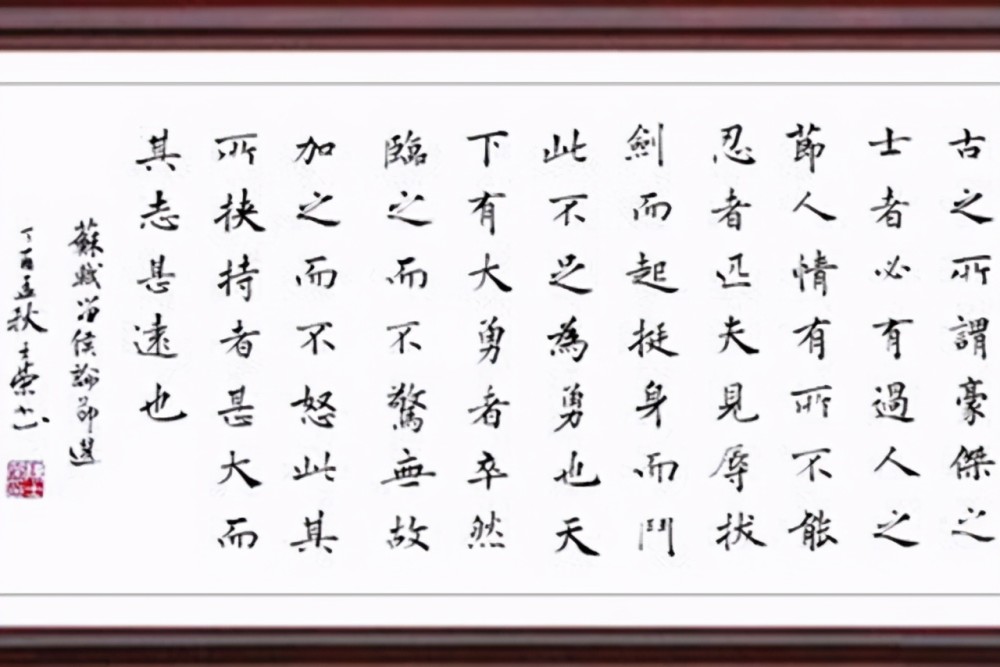 古之所謂豪傑之
士者必有過人之
節人情有所不能
忍者匹夫見辱拔
劍而起挺身而鬥
此不足為勇也天
下有大勇者卒然
臨之而不驚無故
加之而不怒此其
所挾持者甚大而
其志甚遠也
蘇軾留侯論節選
丁酉孟秋 榮